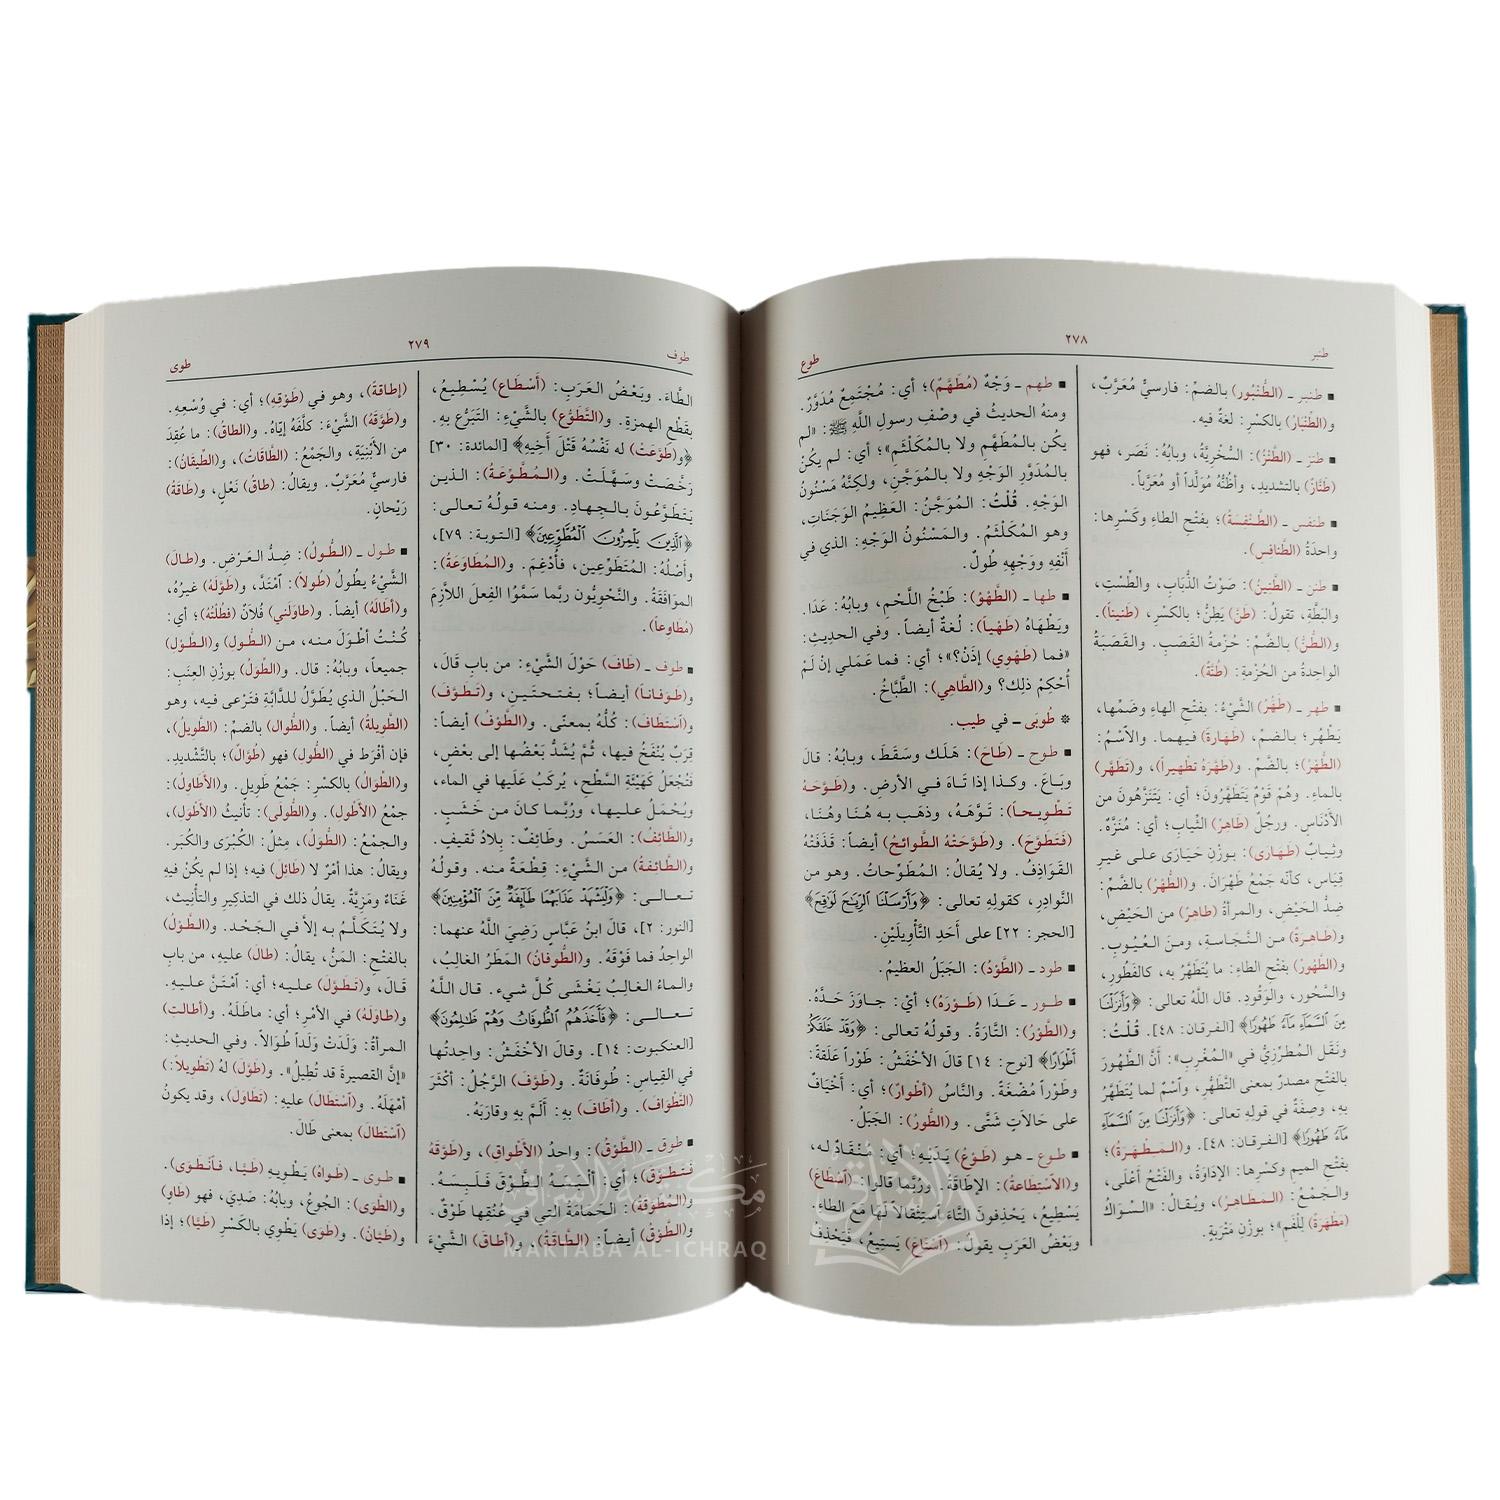 طنبر
٢٧٨
طوع
▪ طنبر ـ (الطُّنْبُور) بالضمّ: فارسيٌّ مُعَرَّبٌ،
و(الطِّنْبَارُ) بالكسْرِ: لغةٌ فيه.
▪ طنز ـ (الطَّنْزُ): السُّخْرِيَّةُ، وبابُهُ: نَصَر، فهو
(طَنَّازٌ) بالتشديدِ، وأظُنُّهُ مُوَلَّداً أو مُعَرَّباً.
▪ طنفس ـ (الطَّنْفَسَةُ)؛ بفتْحِ الطاءِ وكَسْرِها:
واحدَةُ (الطَّنافِسِ).
▪ طنن ـ (الطَّنِينُ): صَوْتُ الذُّبَابِ، والطَّسْتِ،
والبَطَّةِ، تقولُ: (طَنَّ) يَطِنُّ؛ بالكسْرِ، (طَنيناً).
و(الطُّنُّ) بالضَّمِّ: حُزْمةُ القَصَبِ. والقَصَبَةُ
الواحِدةُ من الحُزْمةِ: (طُنَّةٌ).
▪ طهر ـ (طَهُرَ) الشَّيْءُ: بفتْحِ الهاءِ وضَمِّها،
يَطْهُر؛ بالضمِّ، (طَهارَةً) فيهما. والاسْمُ:
(الطُّهْرُ)؛ بالضَّمِّ. و(طَهَّرَهُ تطْهيراً)، و(تَطَهَّر)
بالماءِ. وهُمْ قَوْمٌ يَتَطَهَّرُونَ؛ أي: يَتَنَزَّهُونَ من
الأدْناسِ. ورجُلٌ (طاهِرُ) الثِّيابِ؛ أي: مُنَزَّهٌ.
وثِيابٌ (طَهارَى): بوزْنِ حَيَارَى على غيرِ
قِياسٍ، كأنّه جَمْعُ طَهْرَانَ. و(الطُّهْرُ) بالضَّمِّ:
ضِدُّ الحَيْضِ، والمرأةُ (طاهِرٌ) من الحَيْضِ،
و(طاهِرةٌ) من النَّجاسةِ، ومنَ العُيُوبِ.
و(الطَّهُورُ) بفتْحِ الطاءِ: ما يُتَطَهَّرُ به، كالفَطُورِ،
والسَّحُورِ، والوَقُودِ. قال اللَّهُ تعالى: ﴿وَأَنزَلْنَا
مِنَ ٱلسَّمَآءِ مَآءً طَهُورًا﴾ [الفرقان: ٤٨]. قُلْتُ:
ونَقَل المُطَرِّزِيُّ في «المُغْرِبِ»: أنَّ الطَّهُورَ
بالفتْحِ مصدرٌ بمعنى التَّطَهُّرِ، واسْمٌ لما يُتَطَهَّرُ
بهِ، وصِفَةٌ في قولِهِ تعالى: ﴿وَأَنزَلْنَا مِنَ ٱلسَّمَآءِ
مَآءً طَهُورًا﴾ [الفرقان: ٤٨]. و(المَطْهَرَةُ)؛
بفتْحِ الميمِ وكسْرِها: الإداوَةُ، والفَتْحُ أعْلَى،
والجَمْعُ: (المَطاهِرُ)، ويُقالُ: «السِّوَاكُ
(مَطْهَرَةٌ) لِلْفَمِ»؛ بوزْنِ مَتْرَبةٍ.
▪ طهم ـ وَجْهٌ (مُطَهَّمٌ)؛ أي: مُجْتَمِعٌ مُدَوَّرٌ.
ومنهُ الحديثُ في وصْفِ رسولِ اللَّهِ ﷺ: «لم
يكُن بالمُطَهَّمِ ولا بالمُكَلْثَمِ»؛ أي: لم يكُنْ
بالمُدَوَّرِ الوَجْهِ ولا بالمُوَجَّنِ، ولكِنَّهُ مَسْنُونُ
الوَجْهِ. قُلْتُ: المُوَجَّنُ: العَظِيمُ الوَجَناتِ،
وهو المُكَلْثَمُ. والمَسْنُونُ الوَجْهِ: الذي في
أنْفِهِ ووَجْهِهِ طُولٌ.
▪ طها ـ (الطَّهْوُ): طَبْخُ اللَّحْمِ، وبابُهُ: عَدَا.
ويَطْهَاهُ (طَهْياً): لُغةٌ أيضاً. وفي الحديثِ:
«فما (طَهْوِي) إذَنْ؟»؛ أي: فما عَمَلي إنْ لَمْ
أُحْكِمْ ذلك؟ و(الطَّاهِي): الطَّبَّاخُ.
* طُوبَى ـ في طيب.
▪ طوح ـ (طَاحَ): هَلَك وسَقَطَ، وبابُهُ: قالَ
وبَاعَ. وكذا إذا تَاهَ في الأرضِ. و(طَوَّحَهُ
تَطْوِيحاً): تَوَّهَهُ، وذهَب به هُنا وهُنا،
(فَتَطَوَّحَ). و(طَوَّحَتْهُ الطَّوائحُ) أيضاً: قَذَفَتْهُ
القَوَاذِفُ. ولا يُقالُ: المُطَوِّحاتُ. وهو من
النَّوادِرِ، كقولِهِ تعالى: ﴿وَأَرْسَلْنَا ٱلرِّيَٰحَ لَوَٰقِحَ﴾
[الحجر: ٢٢] على أحَدِ التَّأْوِيلَيْنِ.
▪ طود ـ (الطَّوْدُ): الجَبَلُ العظيمُ.
▪ طور ـ عَدَا (طَوْرَهُ)؛ أيْ: جاوَزَ حَدَّهُ.
و(الطَّوْرُ): التَّارَةُ. وقولُهُ تعالى: ﴿وَقَدْ خَلَقَكُمْ
أَطْوَارًا﴾ [نوح: ١٤] قالَ الأخْفَشُ: طَوْراً عَلَقَةً،
وطَوْراً مُضْغَةً. والنَّاسُ (أطْوارٌ)؛ أي: أخْيَافٌ
على حَالاتٍ شَتَّى. و(الطُّورُ): الجَبَلُ.
▪ طوع ـ هو (طَوْعُ) يَدَيْهِ؛ أي: مُنْقَادٌ له،
و(الاسْتِطَاعةُ): الإطاقَةُ. ورُبَّما قالوا: (اسْطَاعَ)
يَسْطِيعُ، يَحْذِفونَ التَّاءَ اسْتِثْقالاً لَهَا معَ الطاءِ.
وبَعْضُ العَرَبِ يقولُ: (اسْتَاعَ) يَسْتِيعُ، فَيَحْذِفُ
طوف
٢٧٩
طوى
الطَّاءَ. وبَعْضُ العَرَبِ: (أَسْطَاعَ) يُسْطِيعُ،
بقَطْعِ الهمزةِ. و(التَّطَوُّع) بالشَّيْءِ: التَبَرُّع بهِ.
﴿و(طَوَّعَتْ) له نَفْسُهُ قَتْلَ أَخِيهِ﴾ [المائدة: ٣٠]
رَخَّصَتْ وسَهَّلَتْ. و(المُطَّوِّعَةُ): الذين
يَتَطَوَّعُونَ بالجِهادِ. ومنه قولُهُ تعالى:
﴿ٱلَّذِينَ يَلْمِزُونَ ٱلْمُطَّوِّعِينَ﴾ [التوبة: ٧٩]،
وأصْلُهُ: المُتَطَوِّعِين، فأُدْغِمَ. و(المُطَاوَعَةُ):
الموَافَقَةُ. والنَّحْوِيُّون ربَّما سَمَّوُا الفِعلَ اللَّازِمَ
(مُطَاوِعاً).
▪ طوف ـ (طَافَ) حَوْلَ الشَّيْءِ: من بابِ قَالَ،
و(طَوَفاناً) أيضاً؛ بفتحتَينِ، و(تَطَوَّفَ)
و(اسْتَطَافَ): كُلُّهُ بمعنًى. و(الطَّوْفُ) أيضاً:
قِرَبٌ يُنْفَخُ فيها، ثُمَّ يُشَدُّ بَعْضُها إلى بعْضٍ،
فتُجْعَلُ كهَيْئَةِ السَّطْحِ، يُرْكَبُ عَلَيها في الماء،
ويُحْمَلُ عليها، ورُبَّما كانَ من خَشَبٍ.
و(الطائِفُ): العَسَسُ. وطَائِفٌ: بِلادُ ثَقِيفٍ.
و(الطَّائِفةُ) من الشَّيْءِ: قِطْعَةٌ منه. وقولُهُ
تعالى: ﴿وَلْيَشْهَدْ عَذَابَهُمَا طَآئِفَةٌ مِّنَ ٱلْمُؤْمِنِينَ﴾
[النور: ٢]، قالَ ابنُ عَبَّاسٍ رَضِيَ اللَّهُ عنهما:
الواحِدُ فما فَوْقَهُ. و(الطُّوفانُ) المَطَرُ الغالِبُ،
والماءُ الغالِبُ يَغْشَى كُلَّ شيءٍ. قال اللَّهُ
تعالى: ﴿فَأَخَذَهُمُ ٱلطُّوفَانُ وَهُمْ ظَٰلِمُونَ﴾
[العنكبوت: ١٤]. وقالَ الأخْفَشُ: واحِدَتُها
في القِياسِ: طُوفَانَةٌ. و(طَوَّفَ) الرَّجُلُ: أكْثَرَ
(التَّطْوَافَ). و(أطَافَ) بهِ: ألَمَّ بهِ وقارَبَهُ.
▪ طوق ـ (الطَّوْقُ): واحِدُ (الأطْواقِ)، و(طَوَّقَهُ
فَتَطَوَّقَ)؛ أي: ألْبَسَهُ الطَّوْقَ فَلَبِسَهُ.
و(المُطَوَّقَةُ): الحَمامَةُ التي في عُنُقِها طَوْقٌ.
و(الطَّوْقُ) أيضاً: (الطَّاقَةُ)، و(أطاقَ) الشَّيْءَ
(إطاقةً)، وهو في (طَوْقِهِ)؛ أي: في وُسْعِهِ.
و(طَوَّقَهُ) الشَّيْءَ: كلَّفَهُ إيَّاهُ. و(الطاقُ): ما عُقِدَ
من الأبْنِيَةِ، والجَمْعُ: (الطَّاقَاتُ)، و(الطِّيقانُ):
فارسيٌّ مُعَرَّبٌ. ويقالُ: (طاقُ) نَعْلٍ، و(طَاقَةُ)
رَيْحانٍ.
▪ طول ـ (الطُّولُ): ضِدُّ العَرْضِ. و(طالَ)
الشَّيْءُ يطُولُ (طُولاً): امْتَدَّ، و(طَوَّلَهُ) غيرُهُ،
و(أطالَهُ) أيضاً. و(طاوَلَني) فُلانٌ (فطُلْتُهُ)؛ أي:
كُنْتُ أطْوَلَ منه، من (الطُّولِ) و(الطَّوْلِ)
جميعاً، وبابُهُ: قال. و(الطِّوَلُ) بوزْنِ العِنَبِ:
الحَبْلُ الذي يُطَوَّلُ للدَّابَّةِ فتَرْعى فيه، وهو
(الطَّوِيلَةُ) أيضاً. و(الطُّوالُ) بالضمِّ: الطَّوِيلُ،
فإن أفْرَطَ في (الطُّولِ) فهو (طُوَّالٌ)؛ بالتَّشْديدِ.
و(الطِّوَالُ) بالكسْرِ: جَمْعُ طَوِيلٍ. و(الأطَاوِلُ):
جَمْعُ (الأطْوَلِ). و(الطُّولَى): تأنيثُ (الأطْوَلِ)،
والجَمْعُ: (الطُّوَلُ)، مِثلُ: الكُبْرَى والكُبَرِ.
ويقالُ: هذا أمْرٌ لا (طائلَ) فيه؛ إذا لم يكُنْ فيهِ
غَنَاءٌ ومَزِيَّةٌ. يقالُ ذلك في التذكيرِ والتأنيثِ،
ولا يُتَكَلَّمُ به إلاَّ في الجَحْد. و(الطَّوْلُ)
بالفَتْحِ: المَنُّ، يقالُ: (طالَ) عليهِ، من بابِ
قَالَ، و(تَطَوَّل) عليهِ؛ أي: امْتَنَّ عليهِ.
و(طَاوَلَهُ) في الأمْرِ؛ أي: ماطَلَهُ. و(أطَالت)
المرأةُ: وَلَدَتْ وَلَداً طُوَالاً. وفي الحديثِ:
«إنَّ القصيرةَ قد تُطِيلُ». و(طَوَّل) لهُ (تَطْويلاً):
أمْهَلَهُ. و(اسْتَطَالَ) عليهِ: (تَطاوَلَ)، وقد يكونُ
(اسْتَطالَ) بمعنى طَالَ.
▪ طوى ـ (طَواهُ) يَطْوِيهِ (طَيًّا، فانْطَوَى).
و(الطَّوَى): الجُوعُ، وبابُهُ: صَدِيَ، فهو (طَاوٍ)
و(طَيَّانُ). و(طَوَى) يَطْوِي بالكَسْرِ (طَيًّا)؛ إذا
مكتبة الإشراق
MAKTABA AL-ICHRAQ
الإشراق